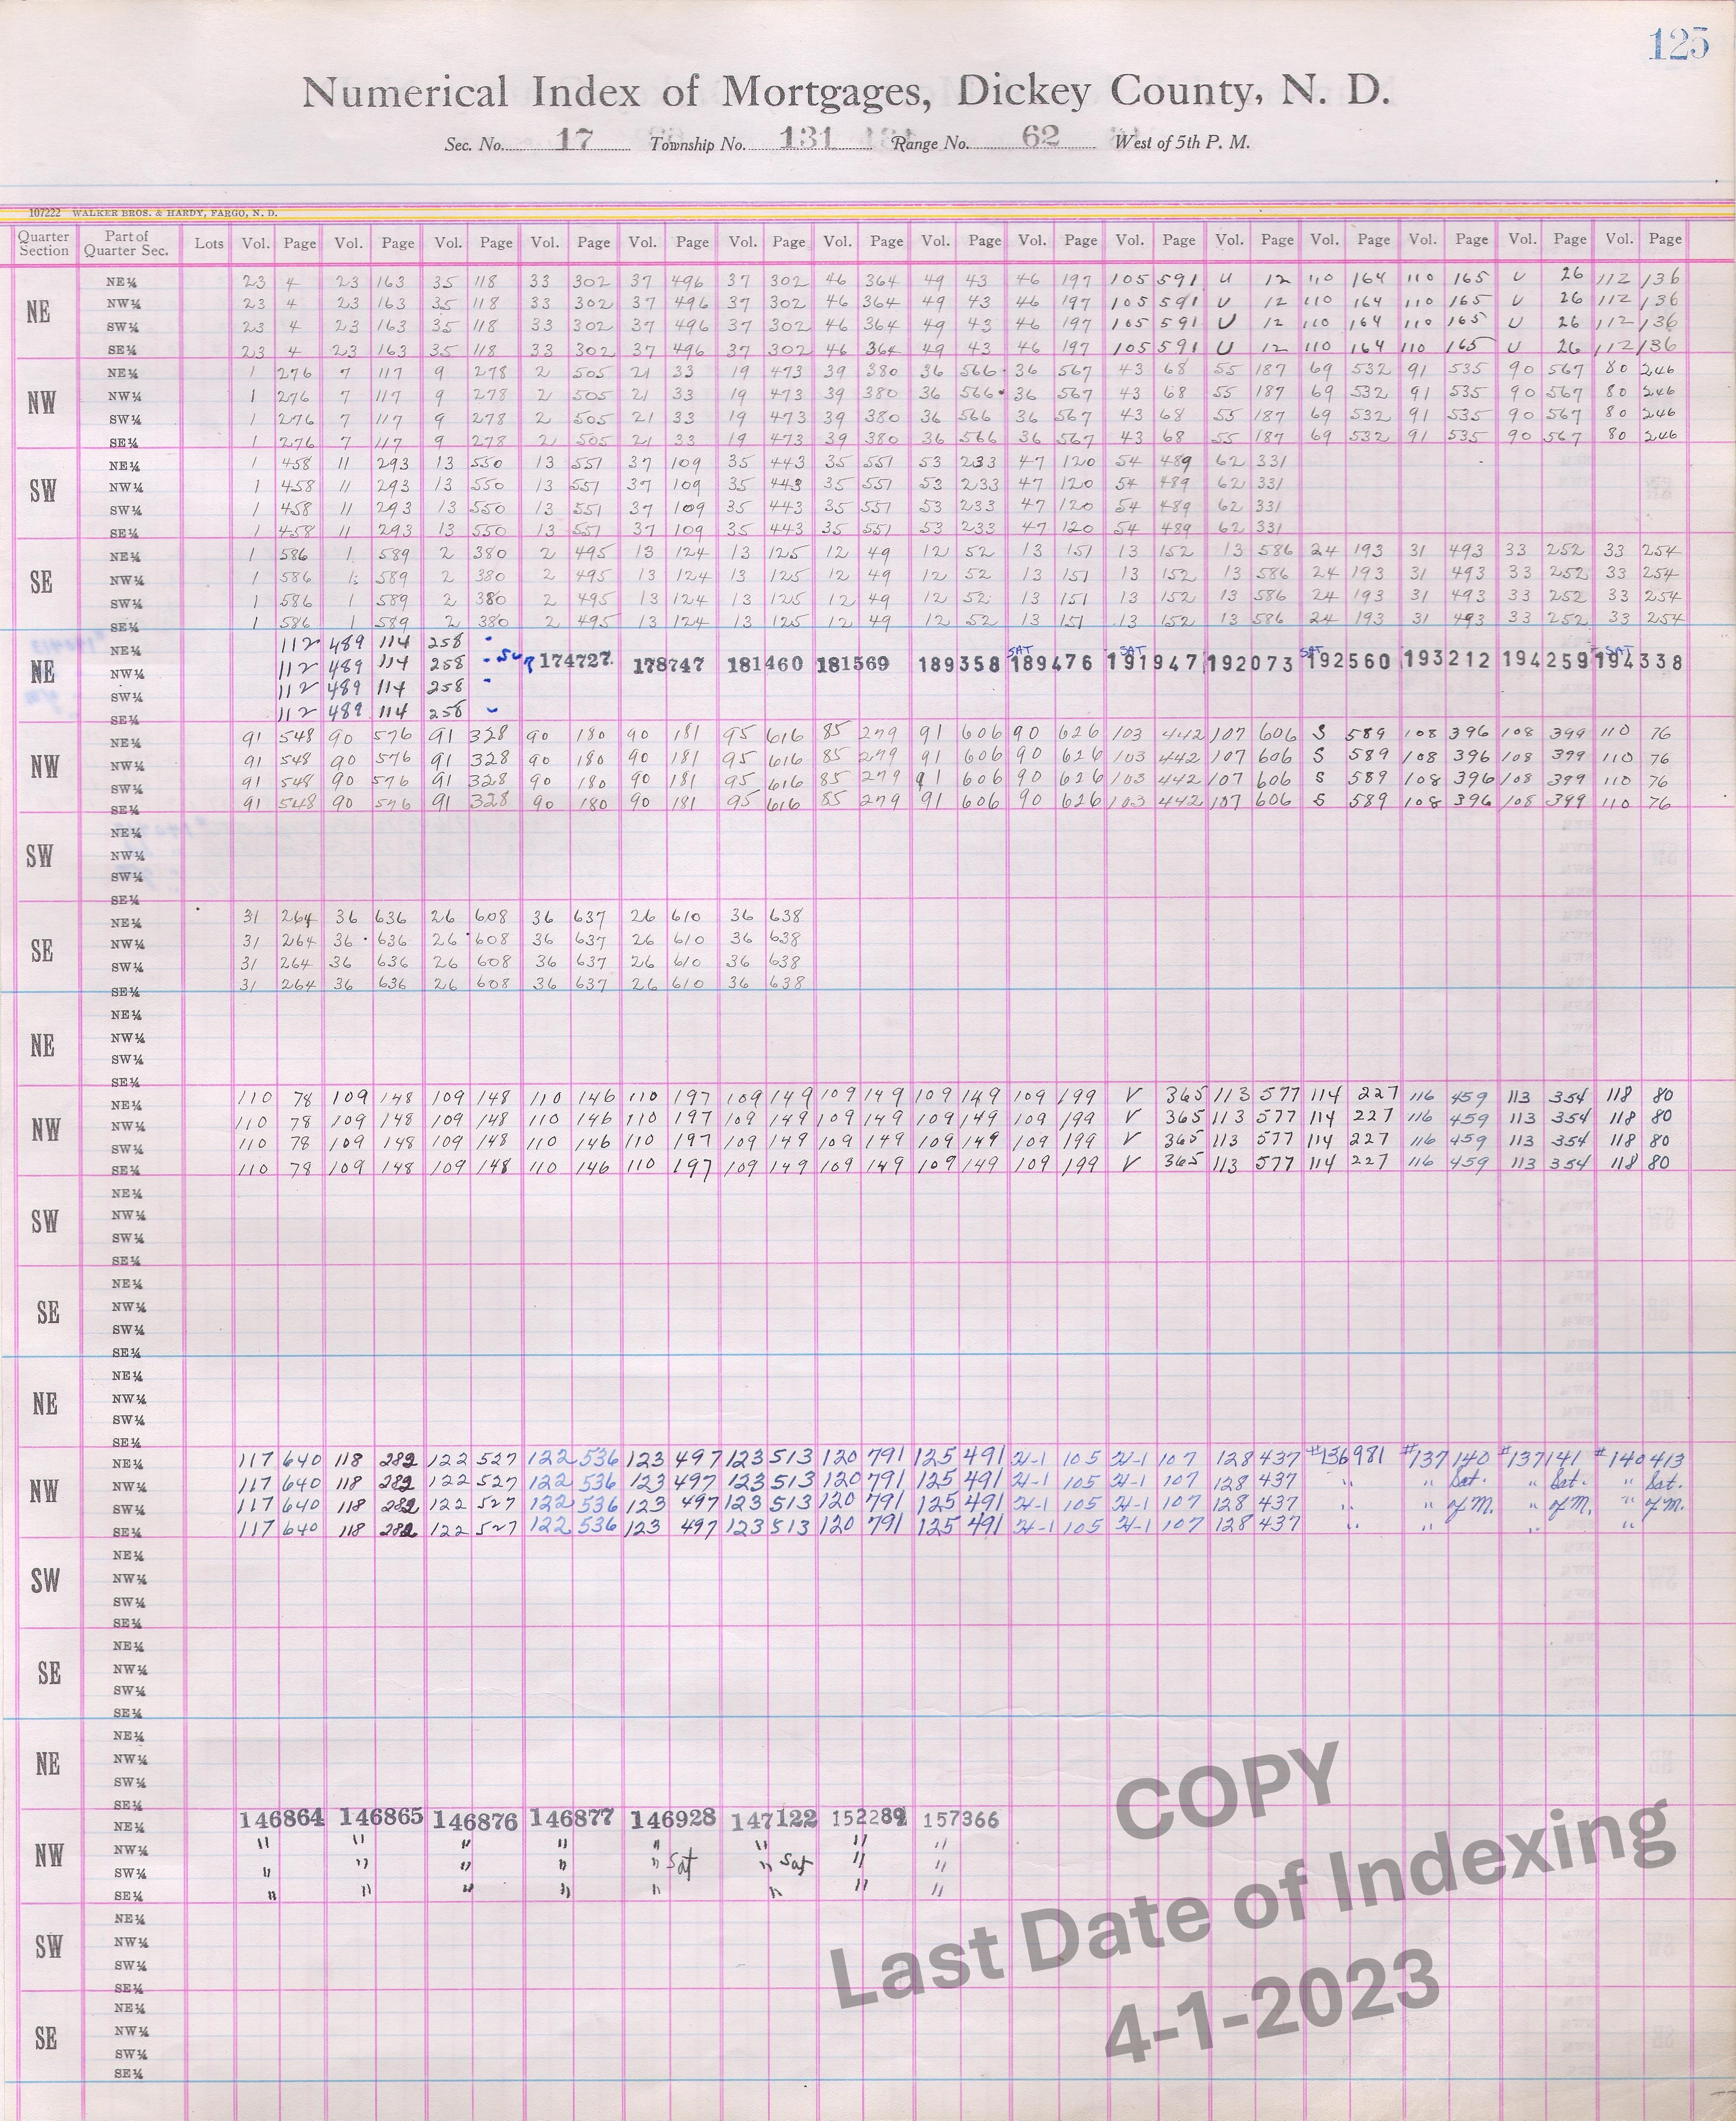 125
Numerical Index of Mortgages, Dickey County, N. D.
Sec. No. 17 Township No. 131 Range No. 62 West of 5th P. M.
107222 WALKER BROS. & HARDY, FARGO, N. D.
Quarter Section Part of Quarter Sec. Lots Vol. Page Vol. Page Vol. Page Vol. Page Vol. Page Vol. Page Vol. Page Vol. Page Vol. Page Vol. Page Vol. Page Vol. Page Vol. Page Vol. Page Vol. Page
NE
NE¼ 23 4 23 163 35 118 33 302 37 496 37 302 46 364 49 43 46 197 105 591 U 12 110 164 110 165 U 26 112 136
NW¼ 23 4 23 163 35 118 33 302 37 496 37 302 46 364 49 43 46 197 105 591 U 12 110 164 110 165 U 26 112 136
SW¼ 23 4 23 163 35 118 33 302 37 496 37 302 46 364 49 43 46 197 105 591 U 12 110 164 110 165 U 26 112 136
SE¼ 23 4 23 163 35 118 33 302 37 496 37 302 46 364 49 43 46 197 105 591 U 12 110 164 110 165 U 26 112 136
NW
NE¼ 1 276 7 117 9 278 2 505 21 33 19 473 39 380 36 566 36 567 43 68 55 187 69 532 91 535 90 567 80 246
NW¼ 1 276 7 117 9 278 2 505 21 33 19 473 39 380 36 566 36 567 43 68 55 187 69 532 91 535 90 567 80 246
SW¼ 1 276 7 117 9 278 2 505 21 33 19 473 39 380 36 566 36 567 43 68 55 187 69 532 91 535 90 567 80 246
SE¼ 1 276 7 117 9 278 2 505 21 33 19 473 39 380 36 566 36 567 43 68 55 187 69 532 91 535 90 567 80 246
SW
NE¼ 1 458 11 293 13 550 13 551 37 109 35 443 35 551 53 233 47 120 54 489 62 331
NW¼ 1 458 11 293 13 550 13 551 37 109 35 443 35 551 53 233 47 120 54 489 62 331
SW¼ 1 458 11 293 13 550 13 551 37 109 35 443 35 551 53 233 47 120 54 489 62 331
SE¼ 1 458 11 293 13 550 13 551 37 109 35 443 35 551 53 233 47 120 54 489 62 331
SE
NE¼ 1 586 1 589 2 380 2 495 13 124 13 125 12 49 12 52 13 151 13 152 13 586 24 193 31 493 33 252 33 254
NW¼ 1 586 1 589 2 380 2 495 13 124 13 125 12 49 12 52 13 151 13 152 13 586 24 193 31 493 33 252 33 254
SW¼ 1 586 1 589 2 380 2 495 13 124 13 125 12 49 12 52 13 151 13 152 13 586 24 193 31 493 33 252 33 254
SE¼ 1 586 1 589 2 380 2 495 13 124 13 125 12 49 12 52 13 151 13 152 13 586 24 193 31 493 33 252 33 254
NE
NE¼ 112 489 114 258 SAT SAT SAT SAT
NW¼ 112 489 114 258 174727 178747 181460 181569 189358 189476 191947 192073 192560 193212 194259 194338
SW¼ 112 489 114 258
SE¼ 112 489 114 258
NW
NE¼ 91 548 90 576 91 328 90 180 90 181 95 616 85 279 91 606 90 626 103 442 107 606 S 589 108 396 108 399 110 76
NW¼ 91 548 90 576 91 328 90 180 90 181 95 616 85 279 91 606 90 626 103 442 107 606 S 589 108 396 108 399 110 76
SW¼ 91 548 90 576 91 328 90 180 90 181 95 616 85 279 91 606 90 626 103 442 107 606 S 589 108 396 108 399 110 76
SE¼ 91 548 90 576 91 328 90 180 90 181 95 616 85 279 91 606 90 626 103 442 107 606 S 589 108 396 108 399 110 76
SW
NE¼
NW¼
SW¼
SE¼
SE
NE¼ 31 264 36 636 26 608 36 637 26 610 36 638
NW¼ 31 264 36 636 26 608 36 637 26 610 36 638
SW¼ 31 264 36 636 26 608 36 637 26 610 36 638
SE¼ 31 264 36 636 26 608 36 637 26 610 36 638
NE
NE¼
NW¼
SW¼
SE¼
NW
NE¼ 110 78 109 148 109 148 110 146 110 197 109 149 109 149 109 149 109 199 V 365 113 577 114 227 116 459 113 354 118 80
NW¼ 110 78 109 148 109 148 110 146 110 197 109 149 109 149 109 149 109 199 V 365 113 577 114 227 116 459 113 354 118 80
SW¼ 110 78 109 148 109 148 110 146 110 197 109 149 109 149 109 149 109 199 V 365 113 577 114 227 116 459 113 354 118 80
SE¼ 110 78 109 148 109 148 110 146 110 197 109 149 109 149 109 149 109 199 V 365 113 577 114 227 116 459 113 354 118 80
SW
NE¼
NW¼
SW¼
SE¼
SE
NE¼
NW¼
SW¼
SE¼
NE
NE¼
NW¼
SW¼
SE¼
NW
NE¼ 117 640 118 282 122 527 122 536 123 497 123 513 120 791 125 491 105 107 128 437 #136981 #137140 #137141 #140413
NW¼ 117 640 118 282 122 527 122 536 123 497 123 513 120 791 125 491 105 107 128 437 " " Sat. " Sat. " Sat.
SW¼ 117 640 118 282 122 527 122 536 123 497 123 513 120 791 125 491 105 107 128 437 " " of M. " of M. " of M.
SE¼ 117 640 118 282 122 527 122 536 123 497 123 513 120 791 125 491 105 107 128 437 " " " "
SW
NE¼
NW¼
SW¼
SE¼
SE
NE¼
NW¼
SW¼
SE¼
NE
NE¼
NW¼
SW¼
SE¼
NW
NE¼ 146864 146865 146876 146877 146928 147122 152289 157366
NW¼ " " " " " " " "
SW¼ " " " " " Sat " Sat " "
SE¼ " " " " " " " "
SW
NE¼
NW¼
SW¼
SE¼
SE
NE¼
NW¼
SW¼
SE¼
COPY
Last Date of Indexing
4-1-2023